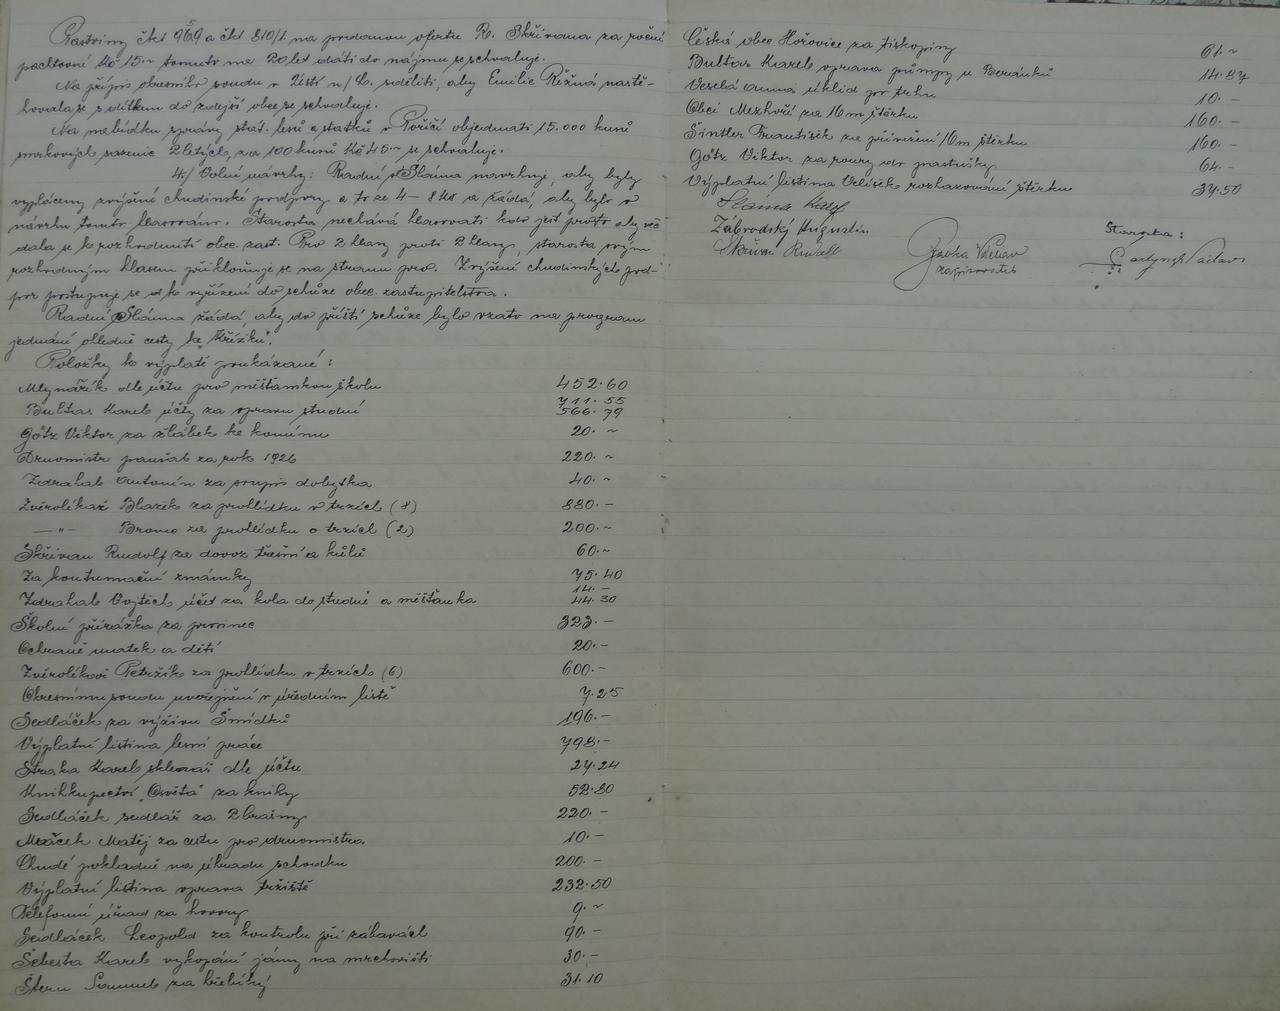 Pastviny čkt 969 a čkt 810/1 na podanou ofertu R. Skřivana za roční
pachtovné Kč 15.~ tomuto na 20 let dáti do nájmu se schvaluje.
Na přípis okresního soudu v Ústí n/L. sděliti, aby Emilie Řížná nastě-
hovala se s dítkem do zdejší obce se schvaluje.
Na nabídku správy stát. lesů a statků v Poříčí objednati 15.000 kusů
smrkových sazenic 2 letých, za 100 kusů Kč 45.~ se schvaluje.
4./ Volné návrhy: Radní Sláma navrhuje, aby byly
vypláceny zvýšené chudinské podpory a to ze 4 – 8 Kč a žádá, aby bylo o
návrhu tomto hlasováno. Starosta nechává hlasovati kdo jest proto aby věc
dala se k rozhodnutí obec. zast. Pro 2 hlasy proti 2 hlasy, starosta svým
rozhodným hlasem přikloňuje se na stranu pro. Zvýšení chudinských pod-
por postupuje se k vyřízení do schůze obec. zastupitelstva.
Radní Sláma žádá, aby do příští schůze bylo vzato na program
jednání ohledně cesty ke „Křížku".
Položky k výplatě poukázané:
Mlynářík dle účtu pro měšťanskou školu 452.60
Bultas Karel účty za opravu studní 711.55
566.79
Götz Viktor za žlábek ke komínu 20.~
Drnomistr paušál za rok 1926 220.~
Zdrahal Antonín za soupis dobytka 40.~
Zvěrolékař Blažek za prohlídku o trzích (8) 880.–
—"— Bronec za prohlídku o trzích (2) 200.~
Skřivan Rudolf za dovoz třešní a kůlů 60.~
Za kontumační známky 75.40
Zdrahal Vojtěch účet za kola do studně a měšťanka 14.–
44.30
Školní přirážka za prosinec 323.–
Ochraně matek a dětí 20.–
Zvěrolékaři Petržík za prohlídku v trzích (6) 600.–
Okresnímu soudu uveřejnění v úředním listě 7.25
Sedláček za výživu Šmídků 196.–
Výplatní listina lesní práce 798.–
Straka Karel sklenář dle účtu 24.24
Knihkupectví „Osvěta" za knihy 52.80
Sedláček sedlář za 2 brašny 220.–
Macháček Matěj za cestu pro drnomistra 10.–
Chudé pokladně na úhradu schodku 200.–
Výplatní listina oprava tržiště 232.50
Telefonní úřad za hovory 9.~
Sedláček Leopold za kontrolu při zábavách 90.–
Šebesta Karel vykopání jámy na mrchovišti 30.–
Štern Samuel za hřebíky 31.10
Česká obec Hořovice za tiskopisy 61.~
Bultas Karel oprava pumpy u Beránků 14.87
Veselá Anna úklid po trhu 10.–
Obci Mezhoří za 16 m štěrku 160.–
Šintler František za přivezení 16 m štěrku 160.–
Götz Viktor za roury do pastušky 64.–
Výplatní listina Velíšek rozhazování štěrku 34.50
Sláma Karel
Zábrodský Augustin
Skřivan Rudolf
zapisovatel
Starosta: